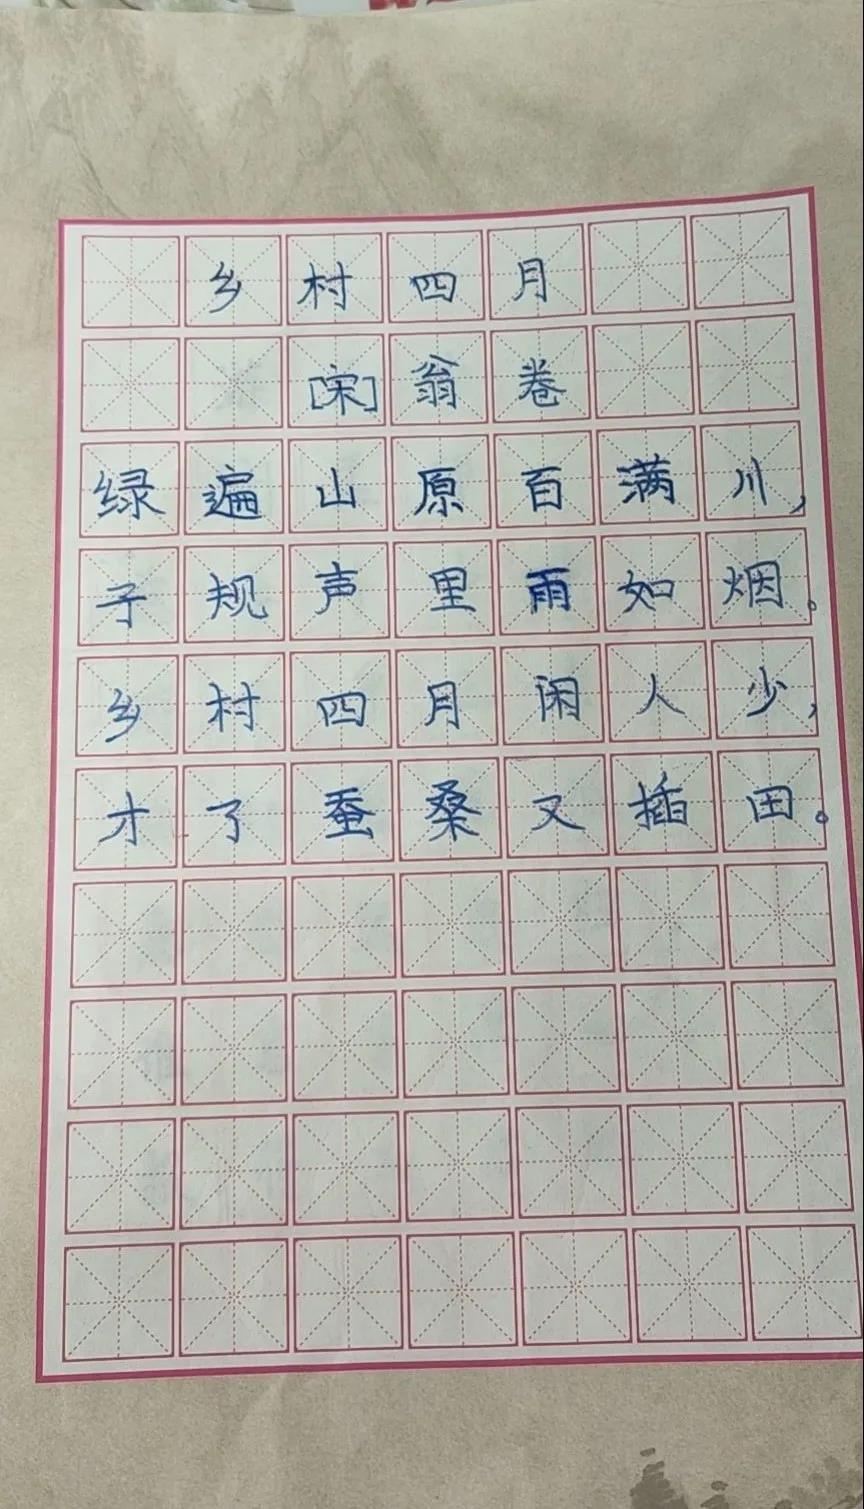 乡村四月
[宋]翁卷
绿遍山原百满川,
子规声里雨如烟。
乡村四月闲人少,
才了蚕桑又插田。